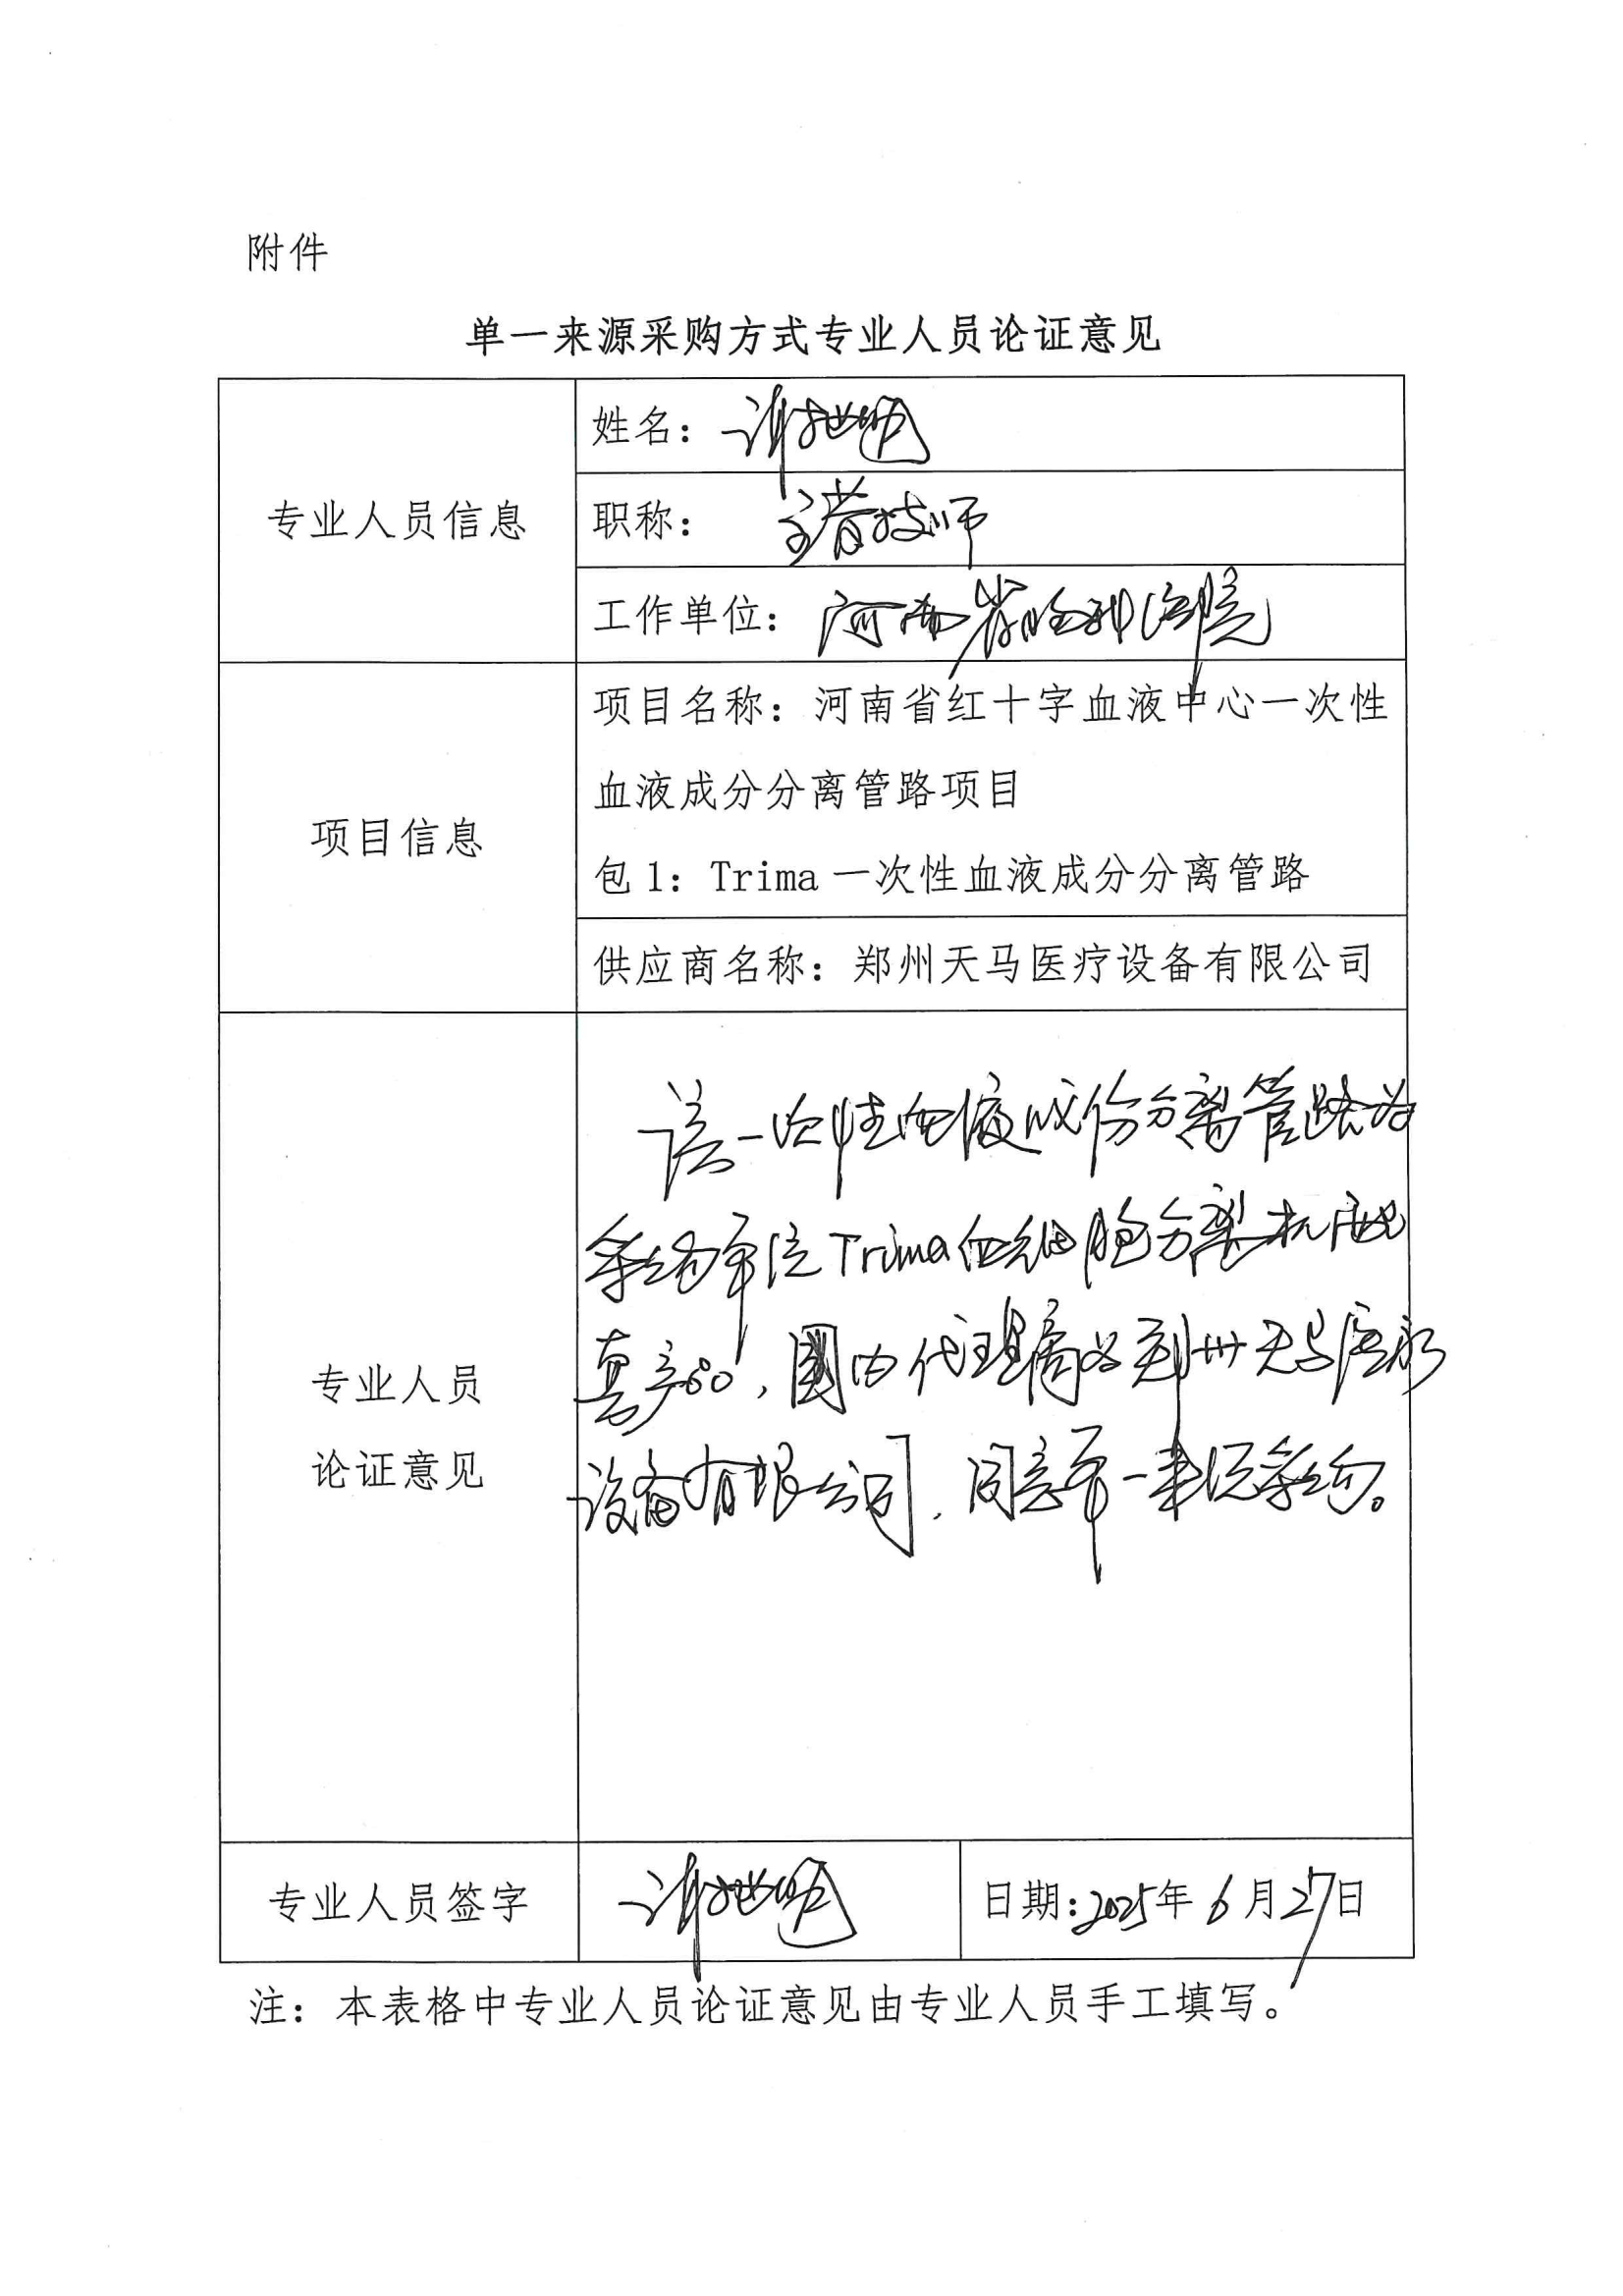 附件
单一来源采购方式专业人员论证意见
专业人员信息
姓名：谢
职称：主管技师
工作单位：河南省胸科医院
项目信息
项目名称：河南省红十字血液中心一次性
血液成分分离管路项目
包1：Trima一次性血液成分分离管路
供应商名称：郑州天马医疗设备有限公司
专业人员
论证意见
该一次性血液成份分离管路为
采购单位Trima血细胞分离机配
套产品，国内代理商为郑州天马医疗
设备有限公司，同意单一来源采购。
专业人员签字
谢
日期：2025年6月27日
注：本表格中专业人员论证意见由专业人员手工填写。